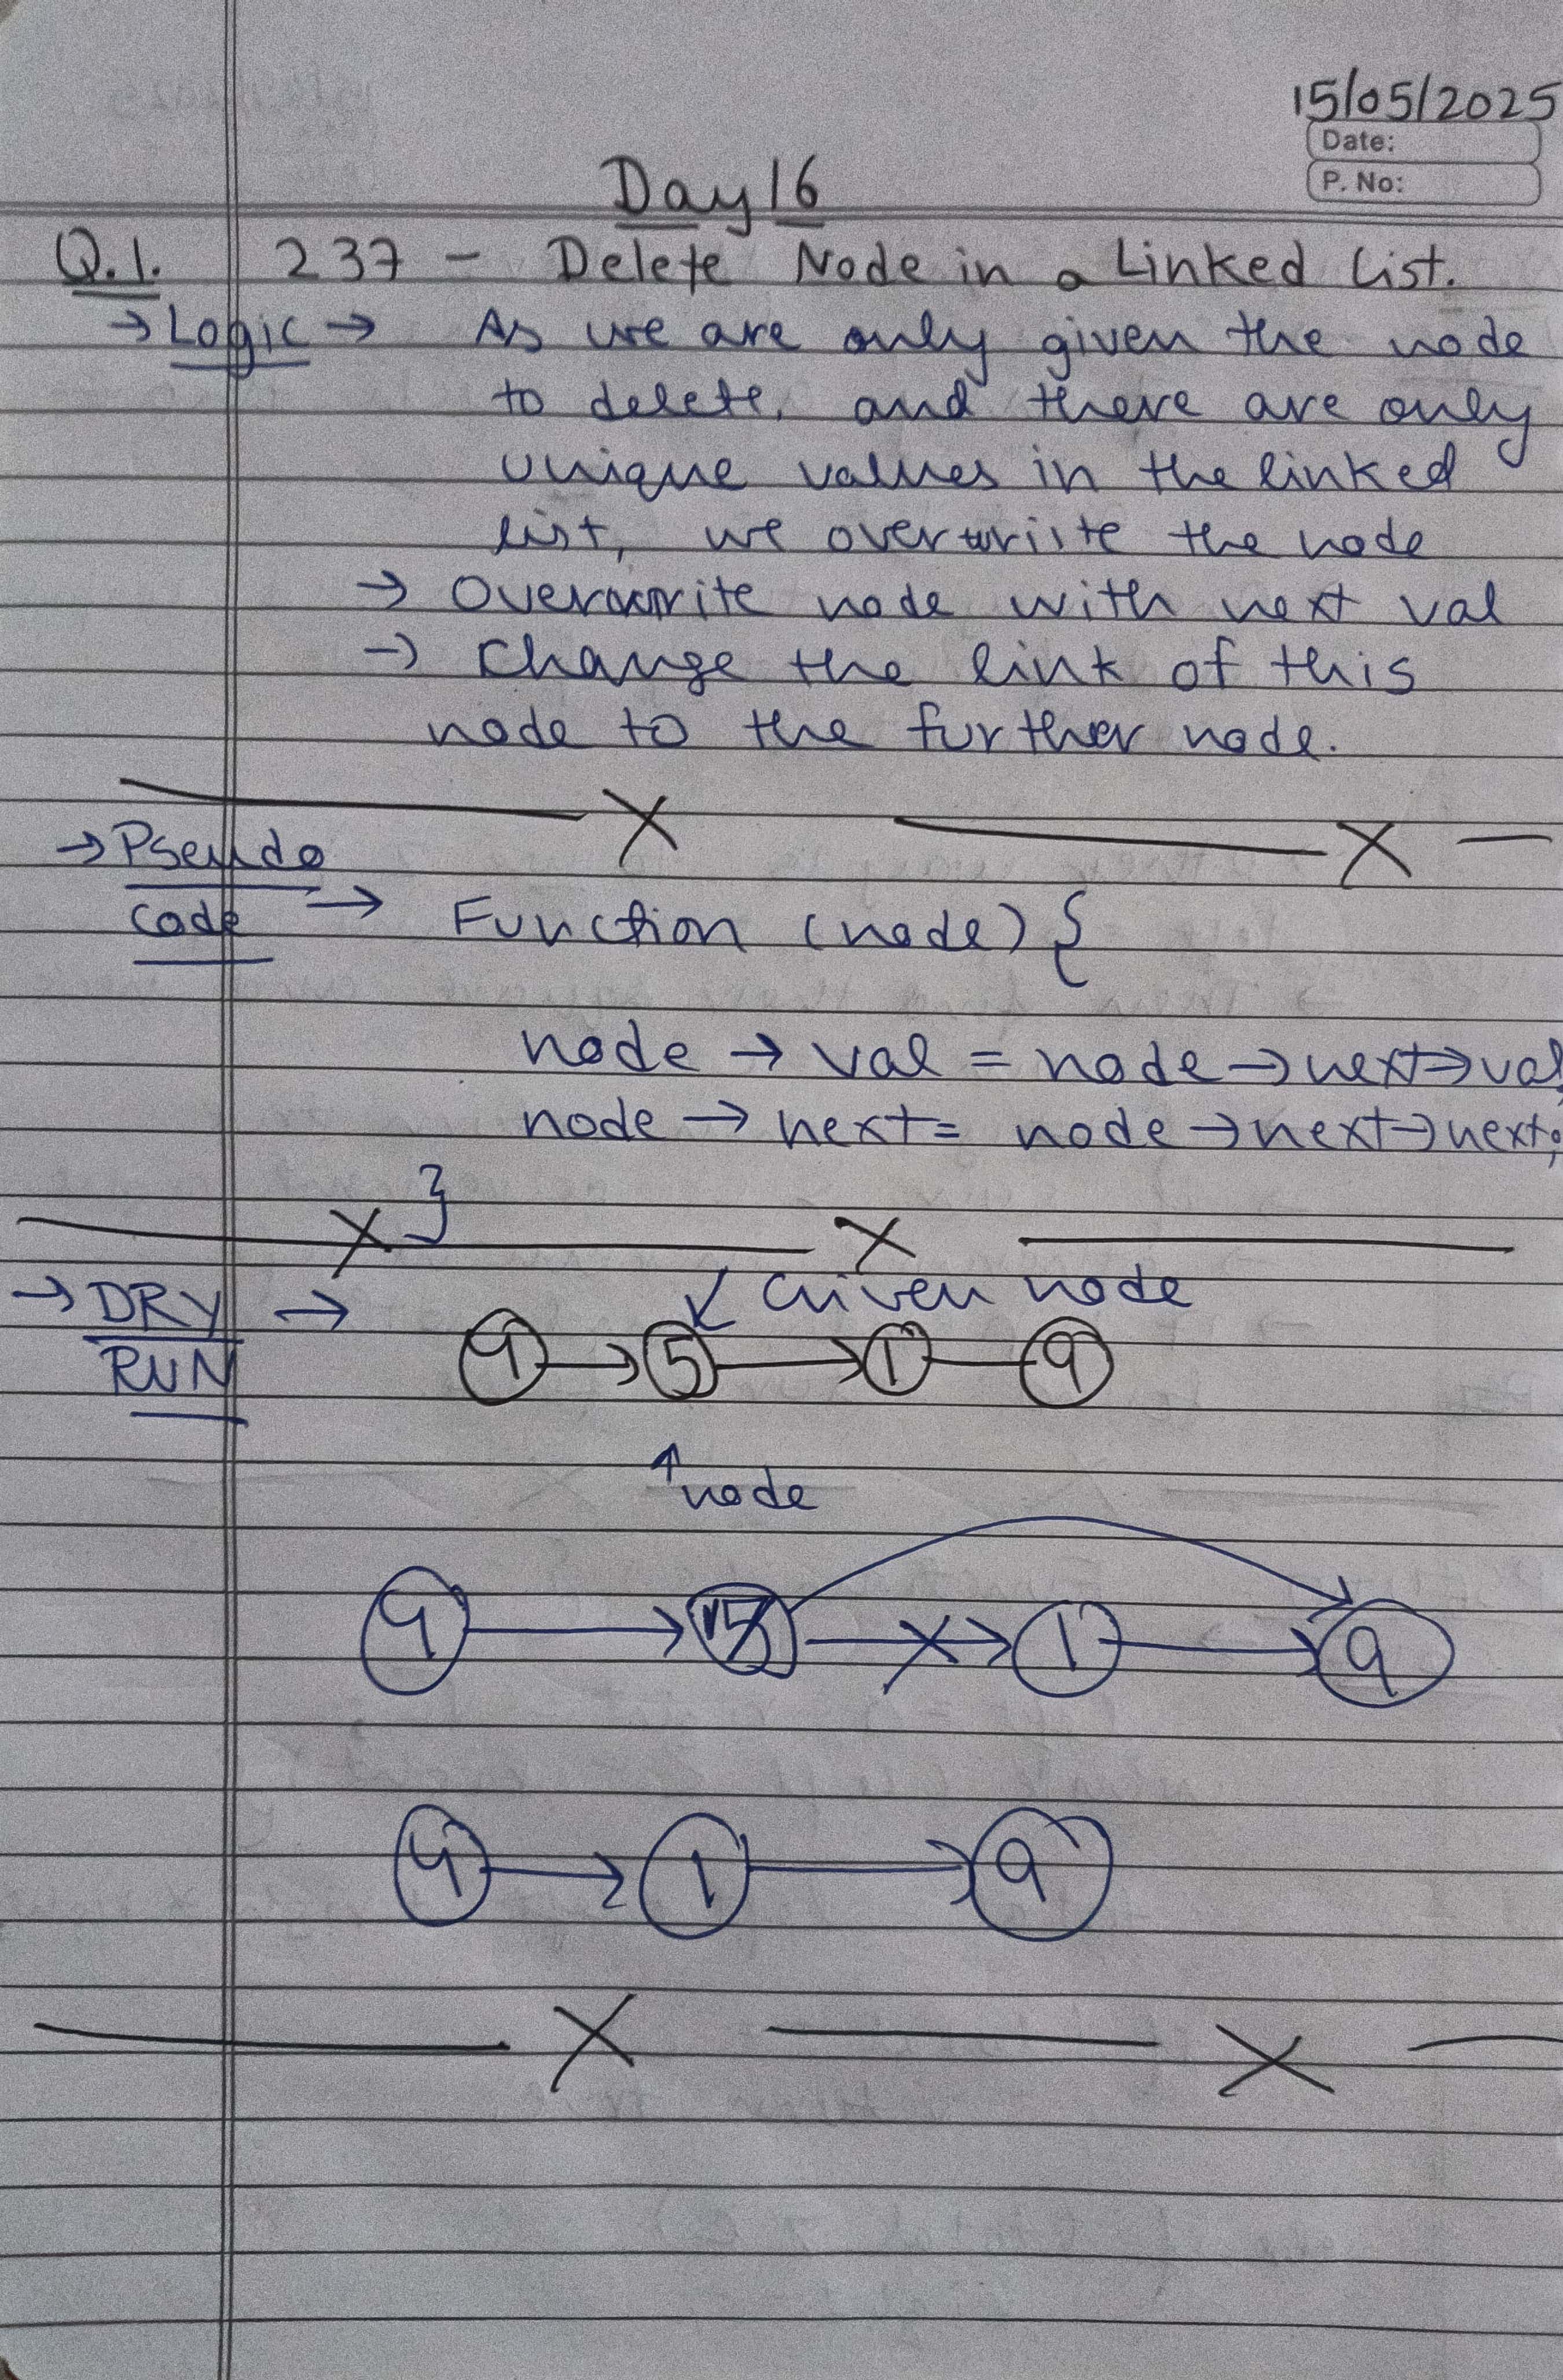 15/05/2025
Date:
P. No:
Day 16
Q.1. 237 - Delete Node in a Linked List.
→ Logic → As we are only given the node
to delete, and there are only
unique values in the linked
list, we overwriite the node
→ Overwrite node with next val
→ Change the link of this
node to the further node.
X X
→ Pseudo
code → Function (node) {
node → val = node → next → val;
node → next = node → next → next;
}
X X
→ DRY → ↙ Given node
RUN 4 → 5 → 1 — 9
↑ node
4 → 1 5 → 1 → 9
4 → 1 → 9
X X